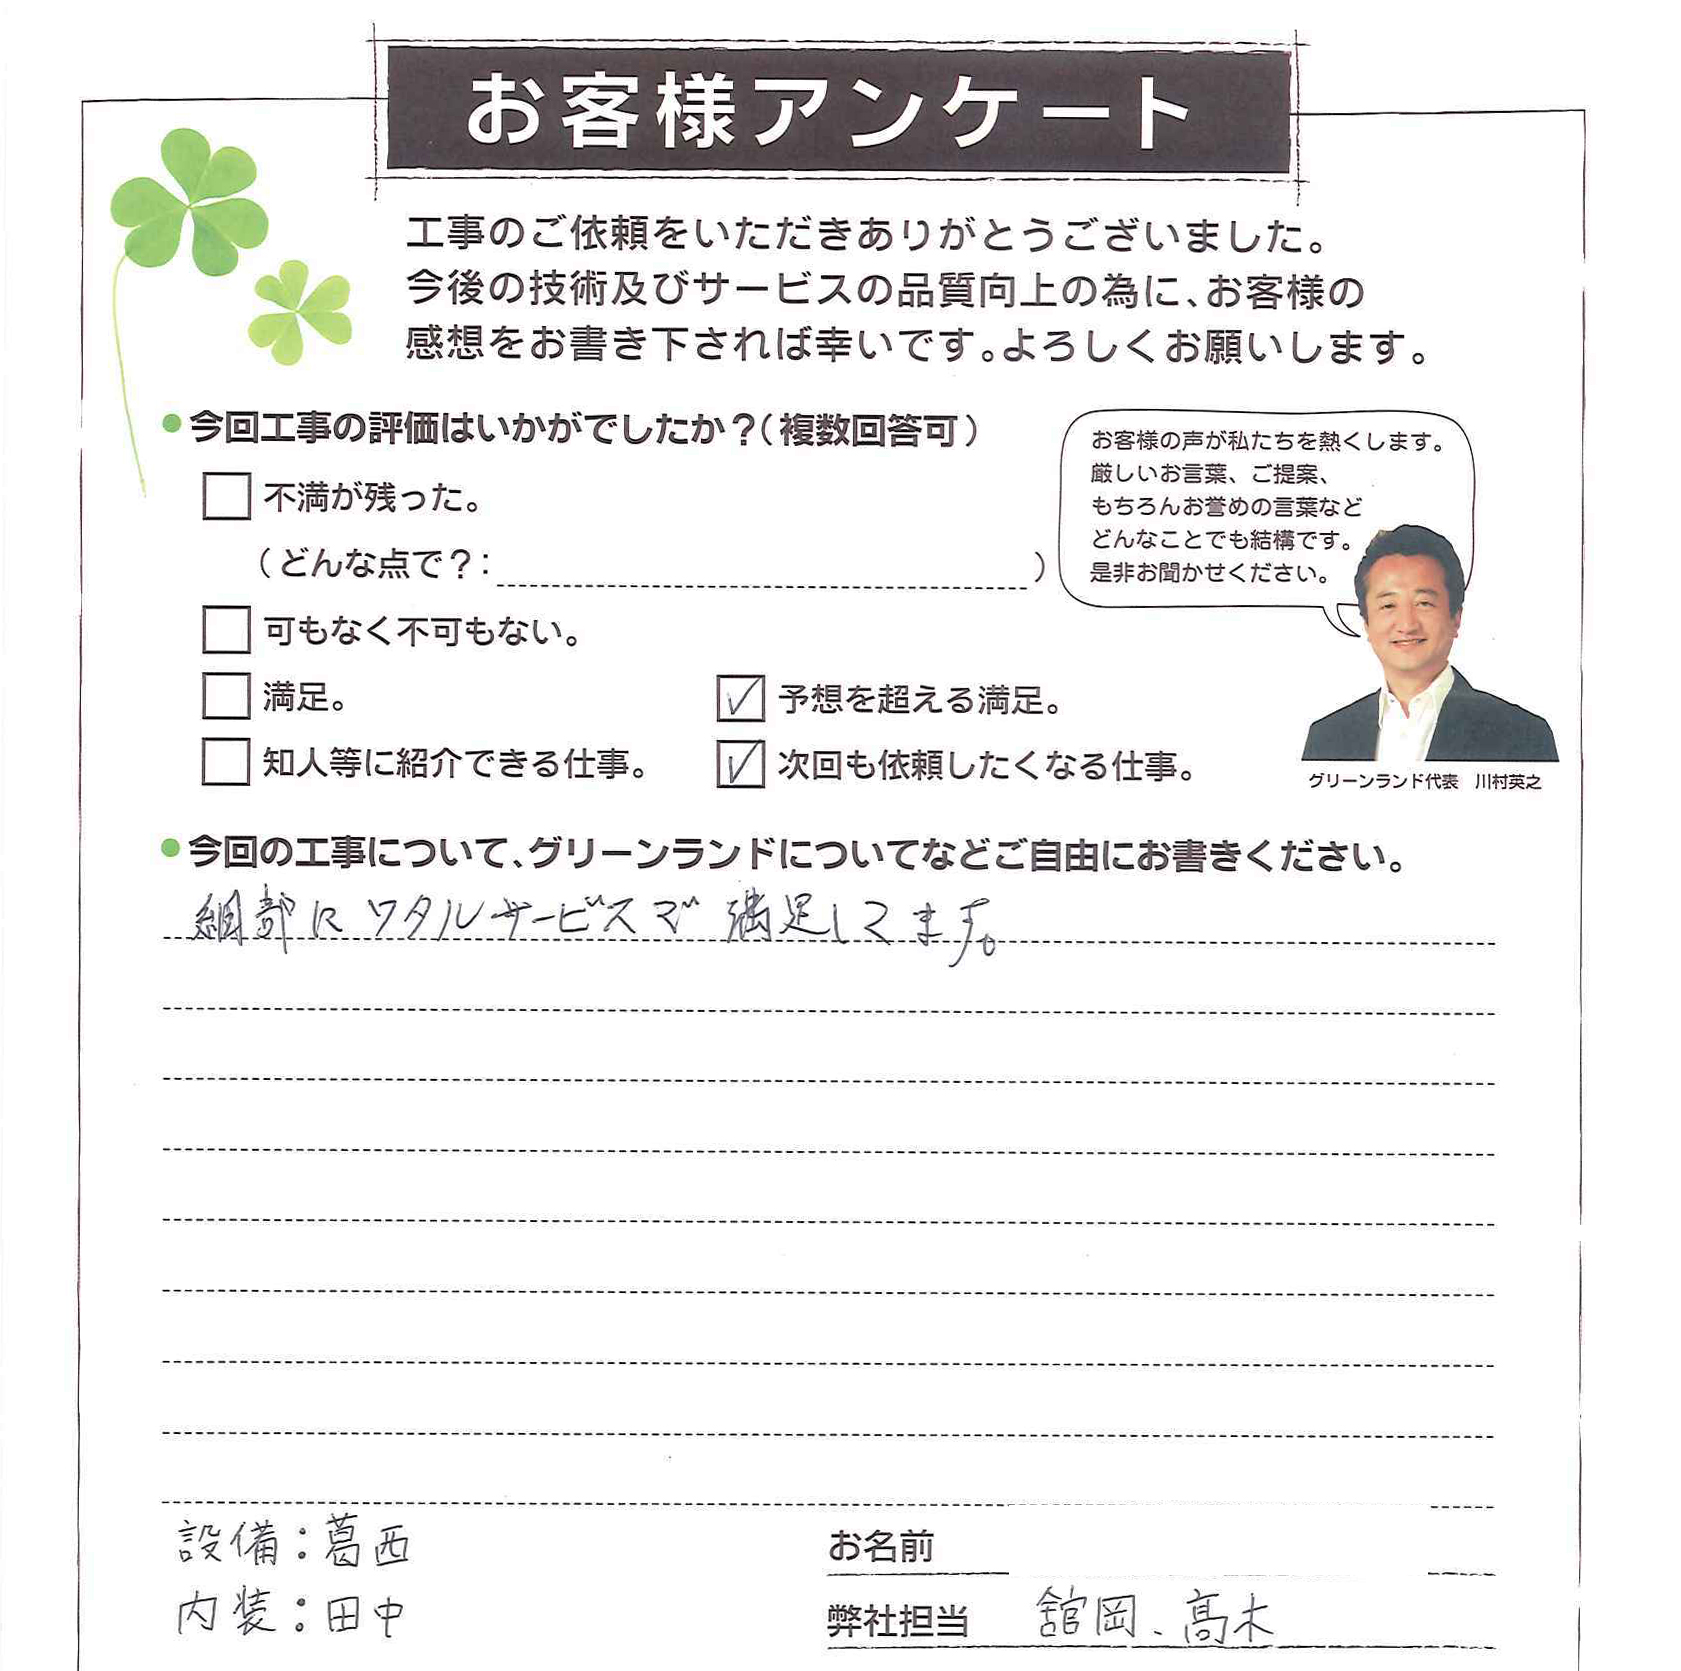 お客様アンケート
工事のご依頼をいただきありがとうございました。
今後の技術及びサービスの品質向上の為に、お客様の
感想をお書き下されば幸いです。よろしくお願いします。
●今回工事の評価はいかがでしたか？（複数回答可）
不満が残った。
（どんな点で？： ）
可もなく不可もない。
満足。
✓ 予想を超える満足。
知人等に紹介できる仕事。
✓ 次回も依頼したくなる仕事。
お客様の声が私たちを熱くします。
厳しいお言葉、ご提案、
もちろんお誉めの言葉など
どんなことでも結構です。
是非お聞かせください。
グリーンランド代表　川村英之
●今回の工事について、グリーンランドについてなどご自由にお書きください。
細部にワタルサービスで満足してます。
設備：葛西
内装：田中
お名前
弊社担当 舘岡、髙木